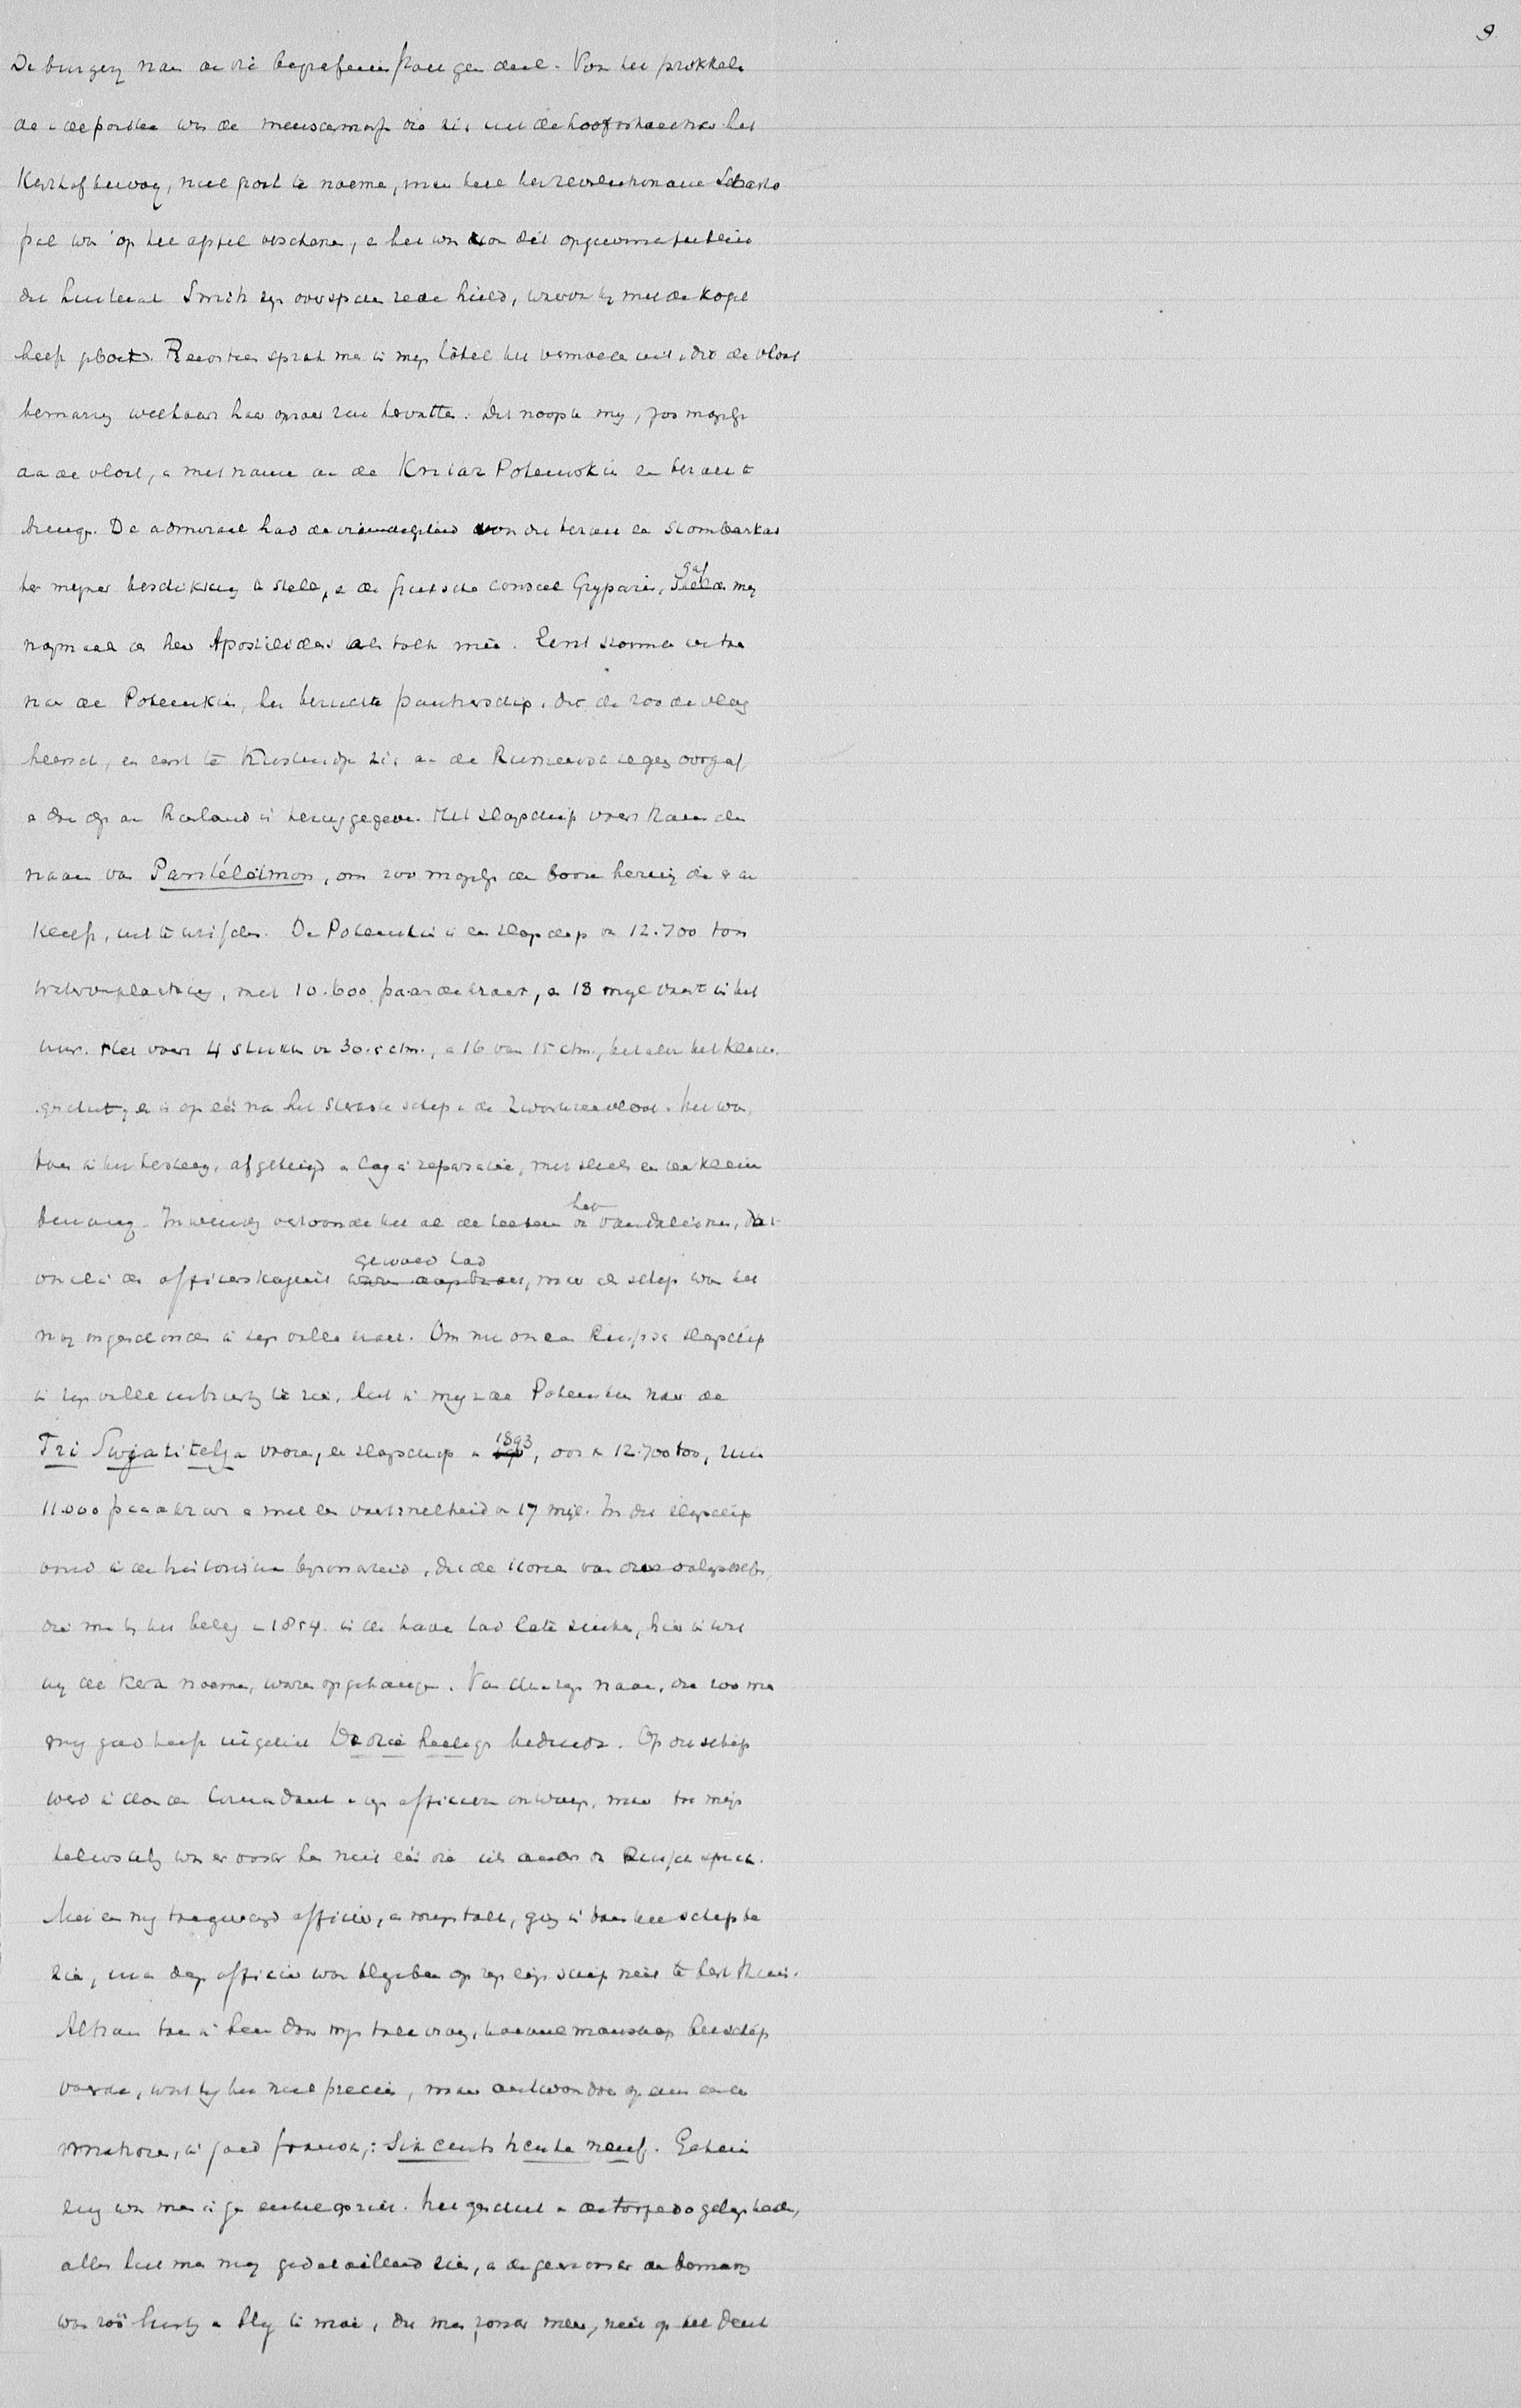 9
De burgerij nam aan die begrafenis
de was de menschenmassa die zich uit de hoofdstraat naar het
Kerkhof bewoog, niet groot te noemen, maar heel het revolutionaire Sebasto
pol was op het appèl verschenen, en het was voor dit
dat luitenant Smith zijn rede hield, waarvoor hij met de kogel
heeft geboet. sprak men in mijn hôtel het vermoeden uit, dat de vloot
haar oproer zou hervatten. Dit noopte mij, zoo mogelijk
aan de vloot, en met name aan de Kniaz Potemkin een bezoek te
brengen. De admiraal had de vriendelijkheid voor dit bezoek een stoombarkas
ter mijner beschikking te stellen, en de Grieksche consul Gryparis, gaf mij
nogmaals den heer Apostolides als tolk mee. Eerst stoomden we toen
naar de Potemkin, het beruchte pantserschip, dat de roode vlag
heesch, en eerst te Kustendje zich aan de Rumeensche regeering overgaf
en door deze aan Rusland is teruggegeven. Het slagschip voert thans den
naam van Pantéléimon, om zoo mogelijk de booze herinnering die er aan
kleeft, uit te wisschen. De Potemkin is een slagschip van 12.700 ton
waterverplaatsing, met 10.600 paardekracht, en 18 mijl vaart in het
uur. Het voert 4 stukken van 30.5 ctm., en 16 van 15 ctm., behalve het kleine
geschut, en is op één na het sterkste schip in de Zwarte zee vloot. Het was
toen ik het bezocht, afgetuigd en lag in reparatie, met slechts een kleine
bemanning. Inwendig vertoonde het al de teekenen van het vandalisme, dat
vooral in de officierskajuit gewoed had, maar het schip was het
nog ongeschonden in zijn volle kracht. Om nu ook een Russisch slagschip
in zijn volle uitrusting te zien, liet ik mij van de Potemkin naar de
Tri Swjatitelja varen, een slagschip van 1893, ook van 12.700 ton, ruim
11.000 paardekracht en met een vaartsnelheid van 17 mijl. In dit slagschip
vond ik de historische bijzonderheid, dat de iconen van drie
die men bij het beleg in 1854 in de haven had laten zinken, hier in wat
wij de kerk noemen, waren opgehangen. Van daar zijn naam, die zoo men
mij goed heeft ingelicht De drie heiligen beduidt. Op dit schip
werd ik door den Commandant en zijn officieren ontvangen, maar tot mijn
teleurstelling was er onder hen niet één die iets anders dan Russisch sprak.
Met een mij toegevoegd officier, en mijn tolk, ging ik toen het schip be
zien, maar deze officier was blijkbaar op zijn eigen schip niet te best thuis.
Althans toen ik hem door mijn tolk vroeg, hoeveel manschap het schip
voerde, wist hij het niet precies, maar antwoordde op eens een der
matrozen, in goed fransch,: Six cents trente neuf. Geheim
zinnig was men in geen enkel opzicht. Het geschut en de torpedo gelegenheden,
alles liet men mij gedetailleerd zien, en de geest onder de bemanning
was zóó lustig en blij te moe, dat men, zonder meer, niet op het denk